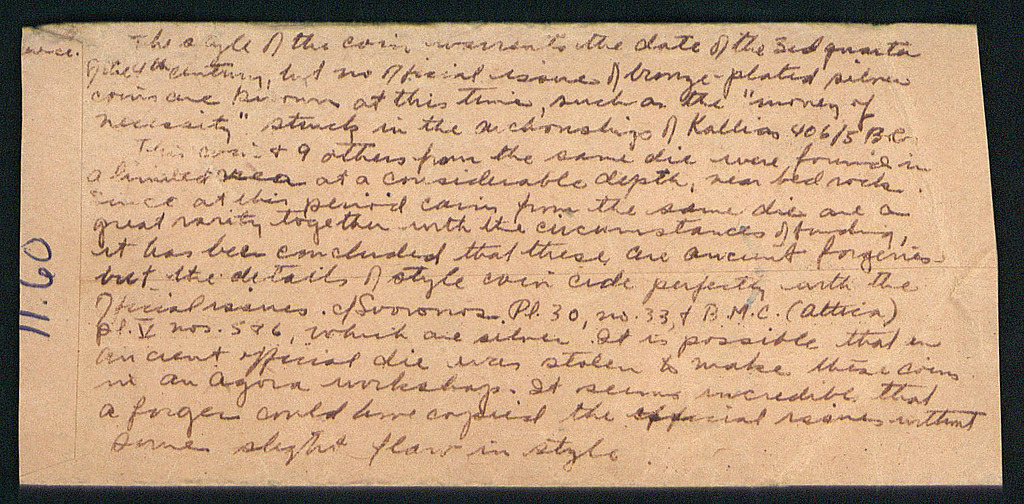 The style of the coin warrants the date of the 3rd quarter
of the 4th century, but no official issues of bronze-plated silver
coins are known at this time, such as the "money of
necessity" struck in the archonship of Kallias 406/5 B.C.
This coin & 9 others from the same die were found in
a limited area at a considerable depth, near bed rock.
Since at this period coins from the same die are a
great rarity together with the circumstances of finding,
it has been concluded that these are ancient forgeries
but the details of style coincide perfectly with the
official issues. cf Svoronos. Pl. 30, no. 33, & B.M.C. (Attica)
pl. V nos. 5 & 6, which are silver. It is possible that an
ancient official die was stolen to make these coins
in an Agora workshop. It seems incredible that
a forger could have copied the official issues without
some slight flaw in style.
11.60